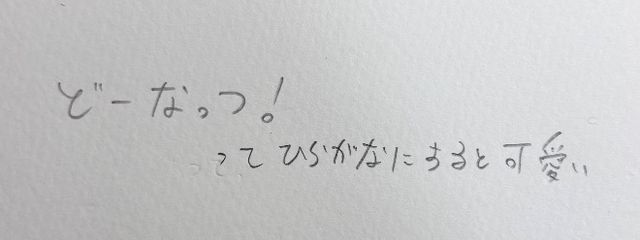 どーなっつ!
ってひらがなにすると可愛い